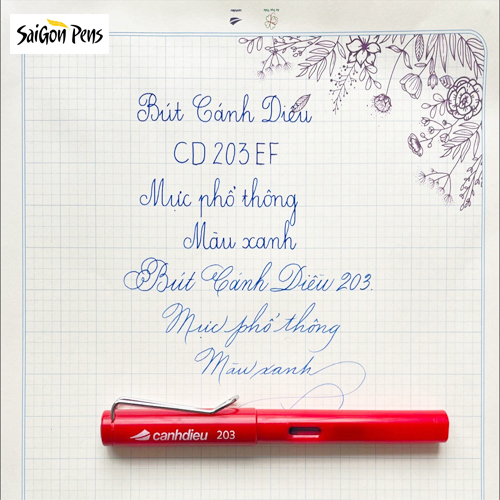 SAIGON PENS
canhdieu
Bút Cánh Diều
CD 203 EF
Mực phổ thông
Màu xanh
Bút Cánh Diều 203.
Mực phổ thông
Màu xanh
canhdieu 203